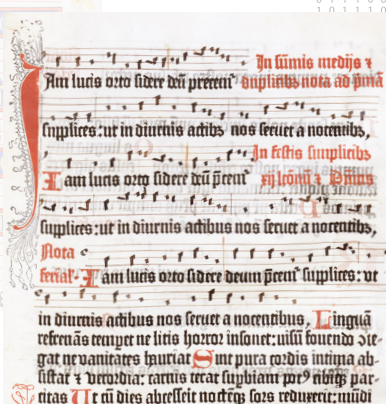 In sūmis medijs ⁊
Iam lucis orto sidere deū precem᷑ duplicibꝫ nota ad pmā
supplices: ut in diurnis actibꝫ nos seruet a nocentibꝫ,
In festis simplicibꝫ
Iam lucis orto sidere deū p̄cem᷑
supplices: ut in diurnis actibus nos seruet a nocentibꝫ,
Nota
ferial. Iam lucis orto sidere deum p̄cem᷑ supplices: vt
in diurnis actibus nos seruet a nocentibus, Linguā
refrenās temperet ne litis horror insonet: uisū fouendo
gat ne vanitates hauriat Sint pura cordis intima ab
sistat ⁊ vecordia: carnis terat supbiam potꝰ cibiqꝫ par
citas Ut cū dies abcesserit noctēqꝫ sors reduxerit: mūdi